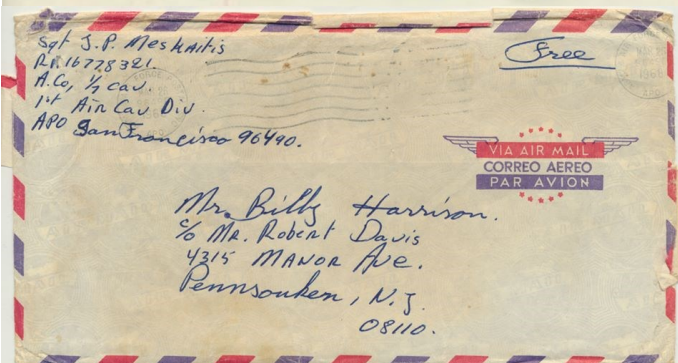 Sgt J.P. Meskaitis
RA 16778321.
A.Co, 1/7 Cav.
1st Air Cav Div.
APO San Francisco 96490.
Free
1968
VIA AIR MAIL
CORREO AEREO
PAR AVION
Mr. Billy Harrison.
c/o Mr. Robert Davis
4315 Manor Ave.
Pennsauken, N.J.
08110.